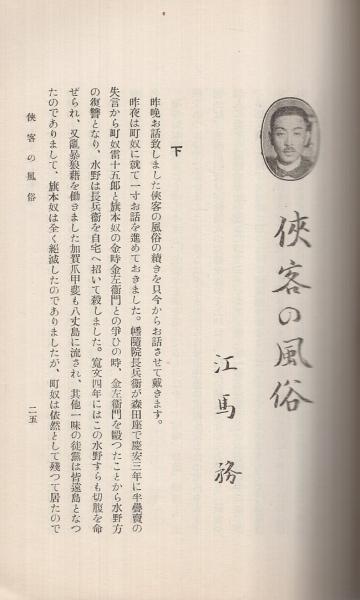 俠客の風俗
江馬務
下
昨晩お話致しました俠客の風俗の續きを只今からお話させて戴きます。
昨夜は町奴に就て一寸お話を進めておきました。幡隨院長兵衞が森田座で慶安三年に半疊賣の
失言から町奴雷十五郎と旗本奴の金時金左衞門との爭ひの時、金左衞門を毆つたことから水野方
の復讐となり、水野は長兵衞を自宅へ招いて殺しました。寬文四年にはこの水野すらも切腹を命
ぜられ、又亂暴狼藉を働きました加賀爪甲斐も八丈島に流され、其他一味の徒黨は皆遠島となつ
たのでありまして、旗本奴は全く絕滅したのでありましたが、町奴は依然として殘つて居たので
俠客の風俗
二五